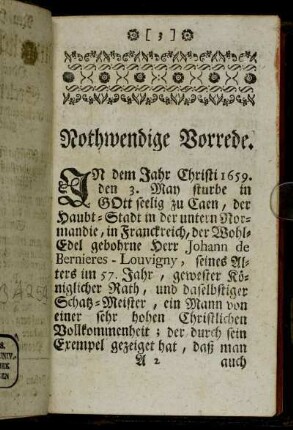 [ 3 ]
Nothwendige Vorrede.
IN dem Jahr Christi 1659.
den 3. May sturbe in
GOtt seelig zu Caen, der
Haubt-Stadt in der untern Nor-
mandie, in Franckreich, der Wohl-
Edel gebohrne Herr Johann de
Bernieres-Louvigny, seines Al-
ters im 57. Jahr, gewester Kö-
niglicher Rath, und daselbstiger
Schatz-Meister, ein Mann von
einer sehr hohen Christlichen
Vollkommenheit; der durch sein
Exempel gezeiget hat, daß man
A 2 auch